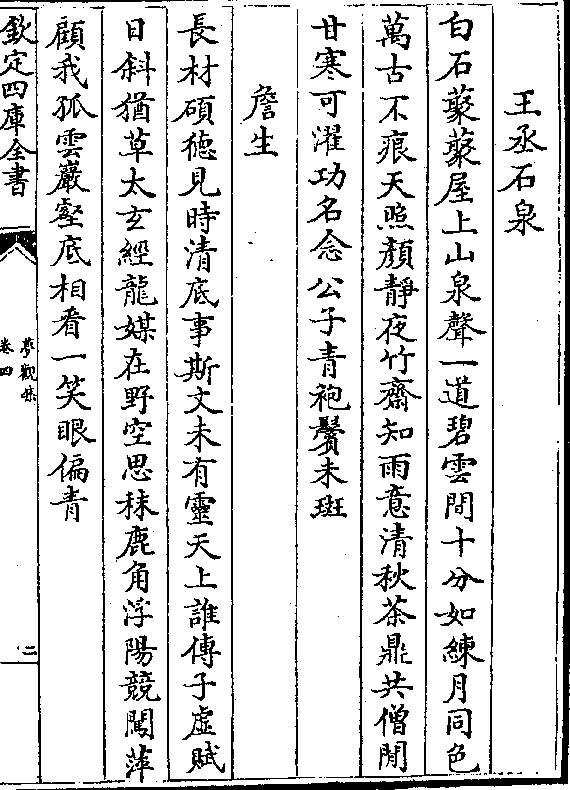 王丞石泉
白石藂藂屋上山泉聲一道碧雲間十分如練月同色
萬古不痕天照顏靜夜竹齋知雨意清秋茶鼎共僧閒
甘寒可濯功名念公子青袍鬢未斑
詹生
長材碩德見時清底事斯文未有靈天上誰傳子虛賦
日斜猶草太玄經龍媒在野空思秣鹿角浮陽競闖萍
顧我孤雲巖壑底相看一笑眼偏青
欽定四庫全書
夢觀集
卷四
二